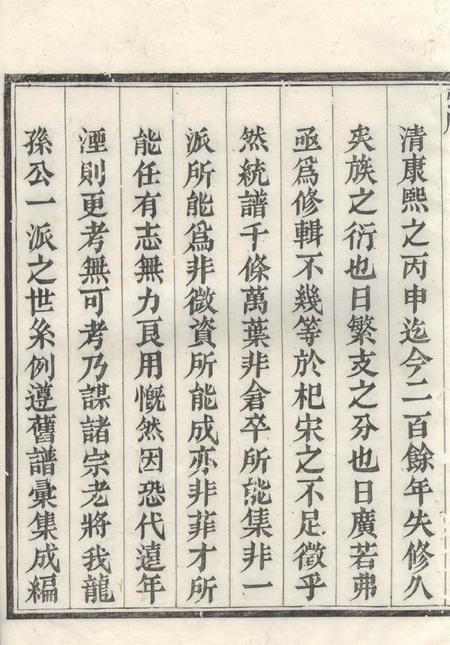 清康熙之丙申迄今二百餘年失修久
矣族之衍也日繁支之分也日廣若弗
亟爲修輯不幾等於杞宋之不足徵乎
然統譜千條萬葉非倉卒所能集非一
派所能爲非微資所能成亦非菲才所
能任有志無力良用慨然因恐代遠年
湮則更考無可考乃謀諸宗老將我龍
孫公一派之世系例遵舊譜彙集成編